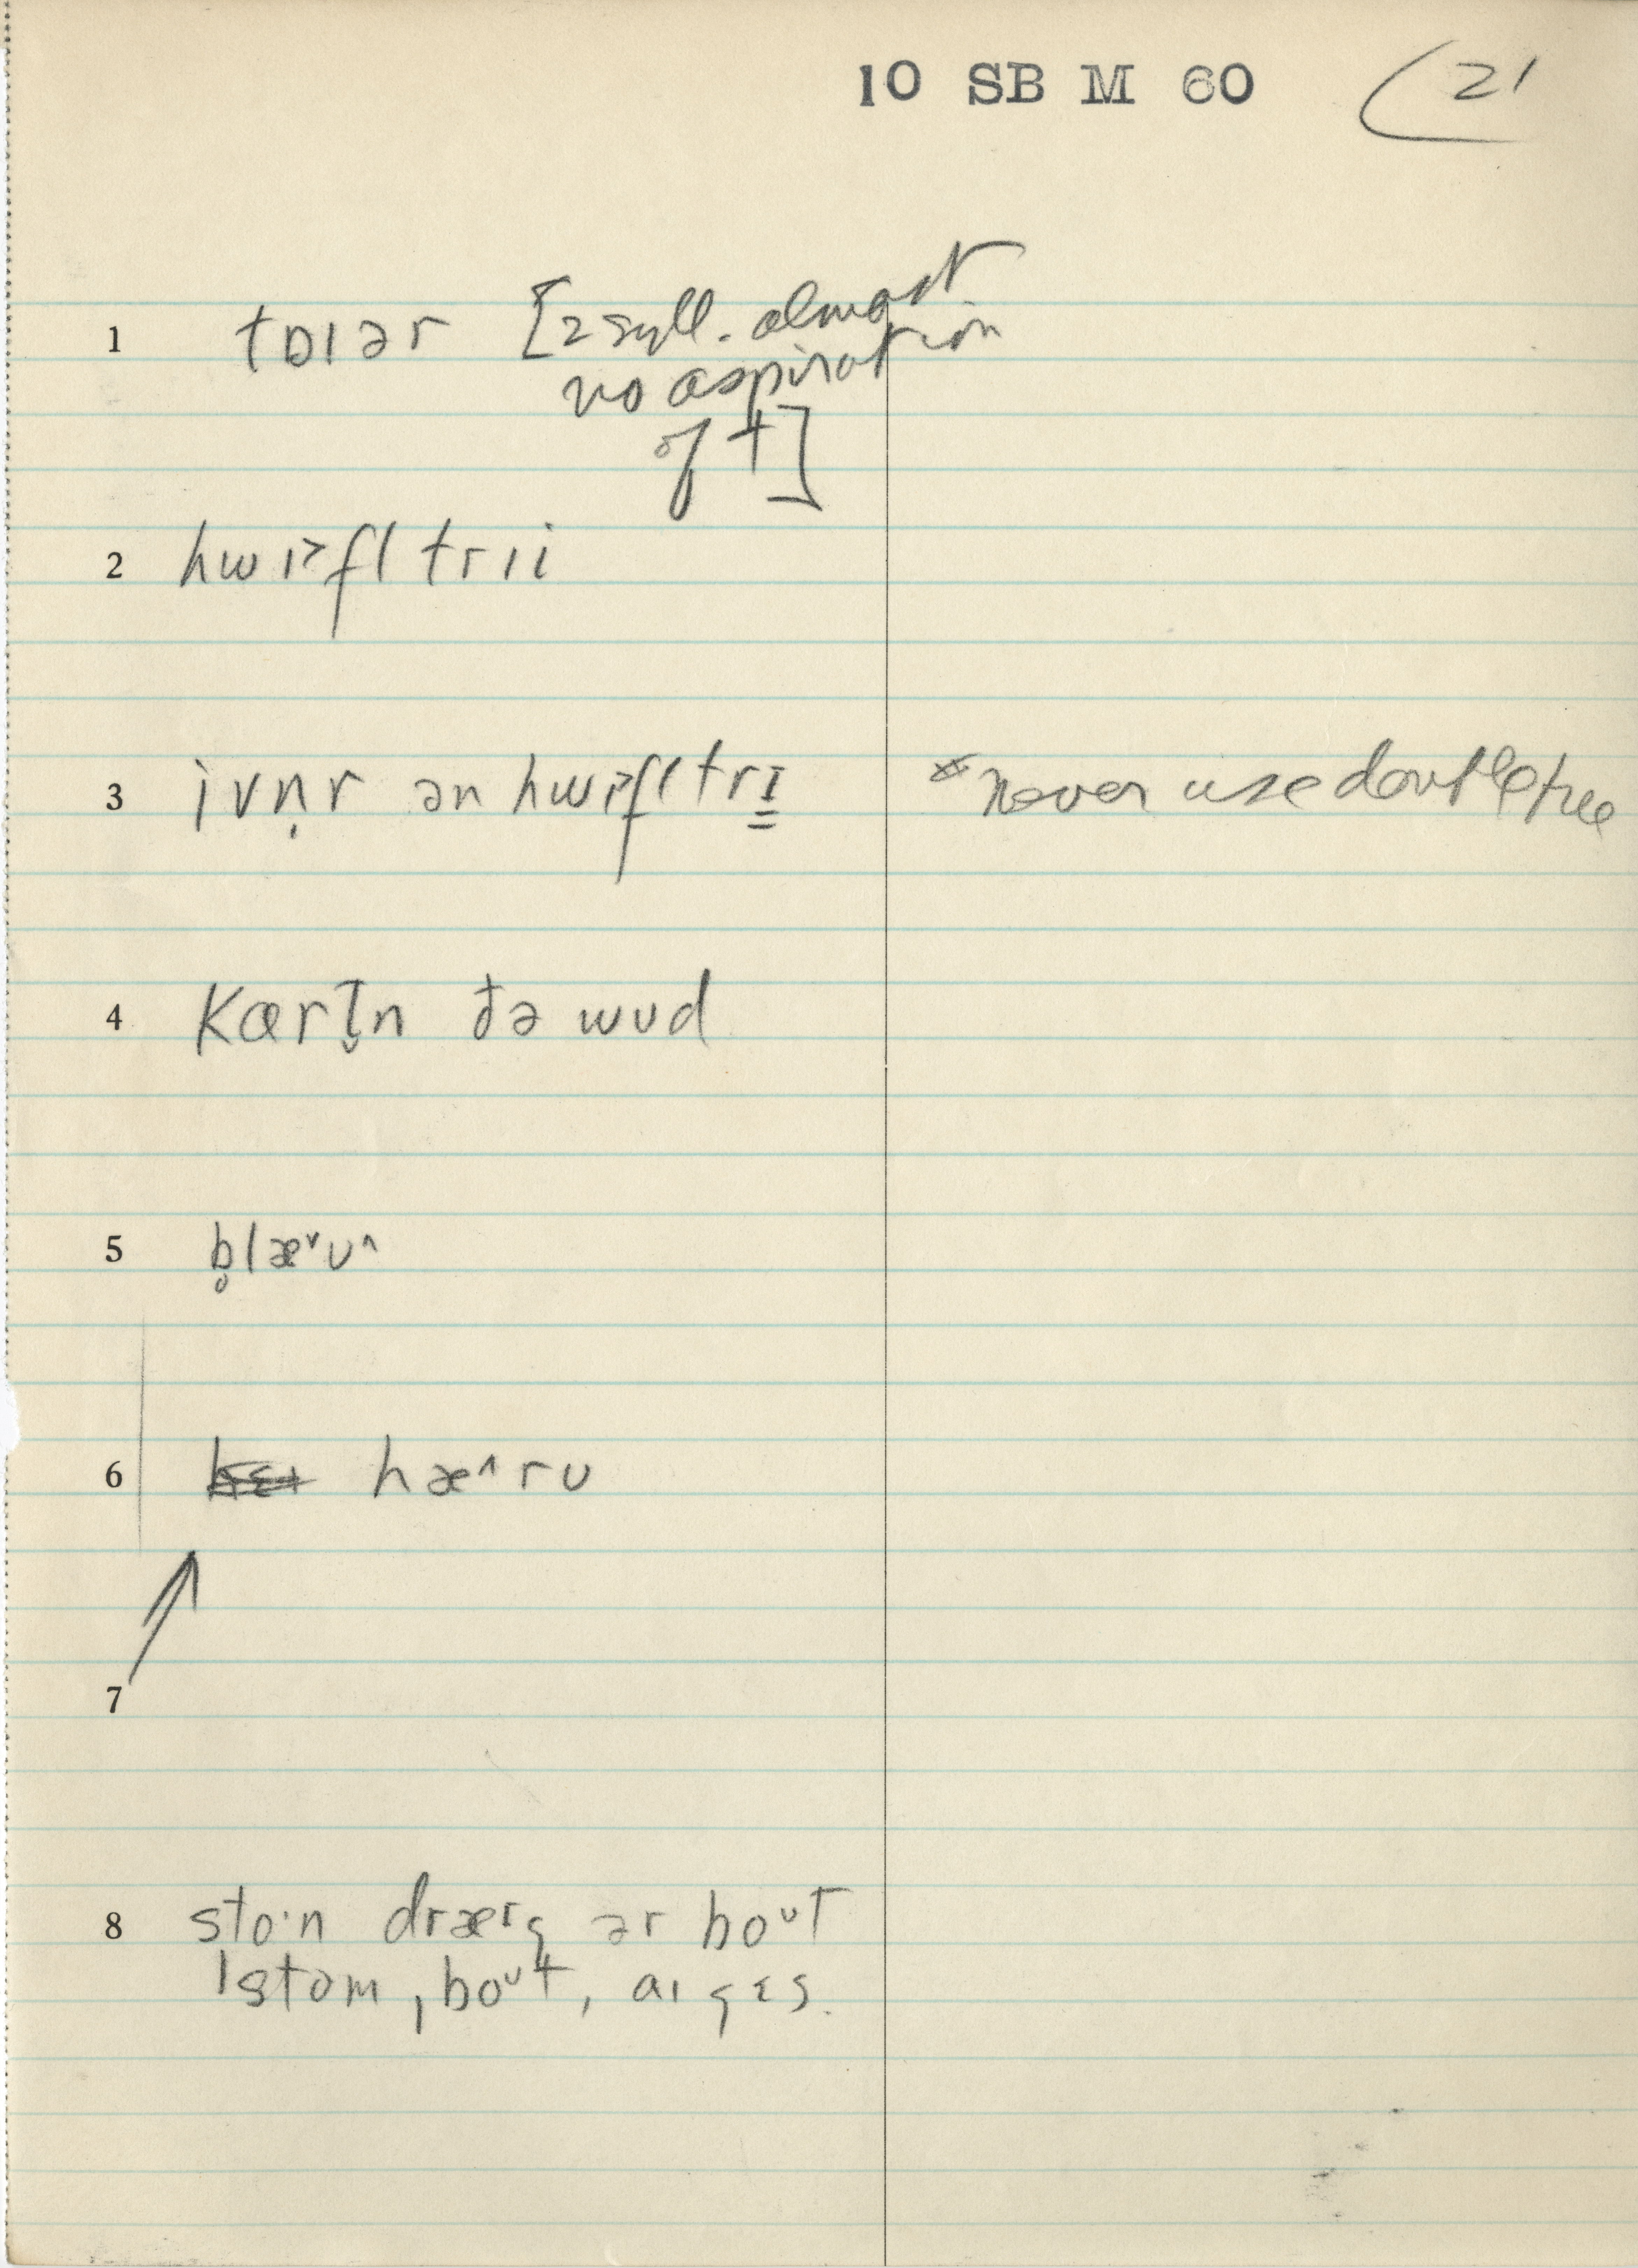 10 SB M 60 21
1 tɒɪər [2 syll. almost
no aspiration
of t]
2 hwɪ˃fl trıi
3 ivṇr ən hwɪ˃fl trɪ̳ × never use doubletree
4 Kærɪ̯̃n ðə wʊd
5 b̥læ˅ʊ˄
6 hæ˄rʊ
7
8 stoˑn dræɪʒ ər boᶷt
1stom, boᶷt, aɪ ʒɛs.